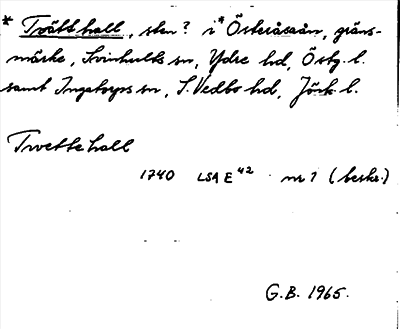 * Tvätthall, sten? i *Österåsaån, gräns-
märke, Svinhults sn, Ydre hd, Östg. l.
samt Ingatorps sn, S. Vedbo hd, Jönk. l.
Twettehall
1740 LSA E 42 nr 1 (beskr.)
G.B. 1965.